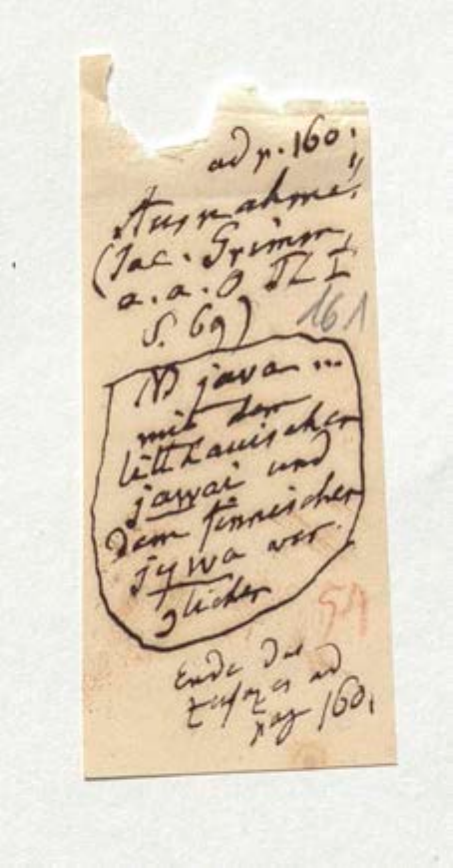 ad p. 160.
Ausnahme!!
(Jac. Grimm,
a. a. O Th I
S. 69)
161
java ...
mit dem
litthauischen
jawai und
dem finnischen
jywa ver-
glichen
59
Ende des
Zusazes ad
pag 160.